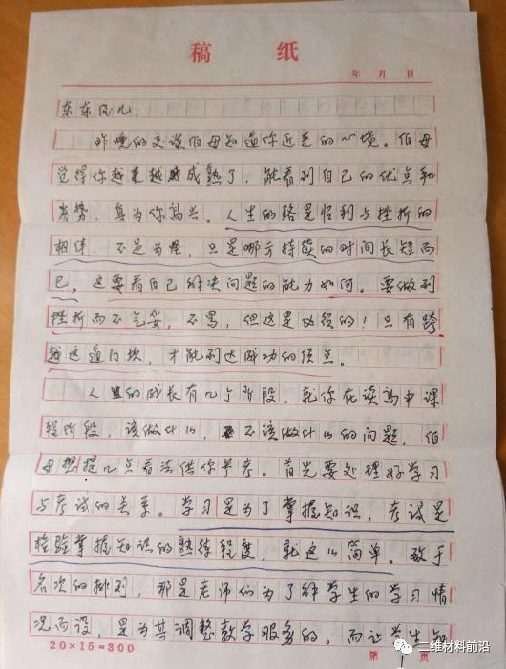 稿 纸
年 月 日
东东侄儿:
昨晚的交谈伯母知道你近来的心境。伯母
觉得你越来越成熟了,能看到自己的优点和
劣势,真为你高兴。人生的路是顺利与挫折的
相伴,不是为怪,只是哪方持续的时间长短而
已,这要看自己解决问题的能力如何。要做到
挫折而不气妥,不易,但这是必须的!只有跨
越这道门坎,才能到达成功的顶点。
人生的成长有几个阶段,就你在读高中课
程阶段,该做什么,不该做什么的问题,伯
母想提几点看法供你参考。首先要处理好学习
与考试的关系。学习是为了掌握知识,考试是
检验掌握知识的熟练程度,就这么简单。致于
名次的排列,那是老师们为了解学生的学习情
况而设,是为其调整教学服务的,而让学生知
20×15=300
第 页
三维材料前沿